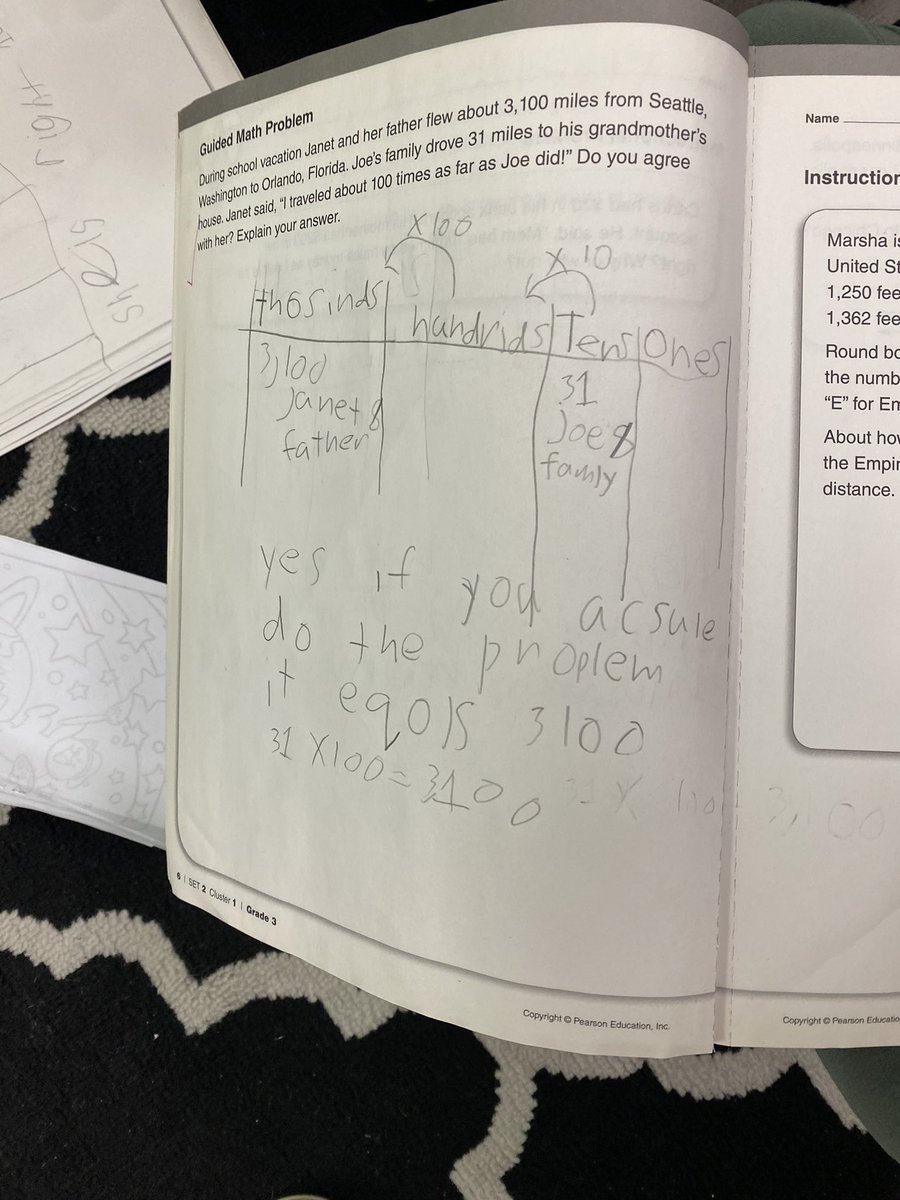 Guided Math Problem
During school vacation Janet and her father flew about 3,100 miles from Seattle,
Washington to Orlando, Florida. Joe's family drove 31 miles to his grandmother's
house. Janet said, "I traveled about 100 times as far as Joe did!" Do you agree
with her? Explain your answer.
X 100
X 10
thosinds hundrids Tens Ones
3,100 31
Janet & Joe &
father famly
yes if you acsule
do the proplem
it eqols 3100
31 X100 = 3100
31 X 100 3,100
6 | SET 2 Cluster 1 | Grade 3
Copyright © Pearson Education, Inc.
Name
Instruction
Marsha is
United St
1,250 fee
1,362 fee
Round bo
the numb
"E" for Em
About how
the Empir
distance.
Copyright © Pearson Educatio
right